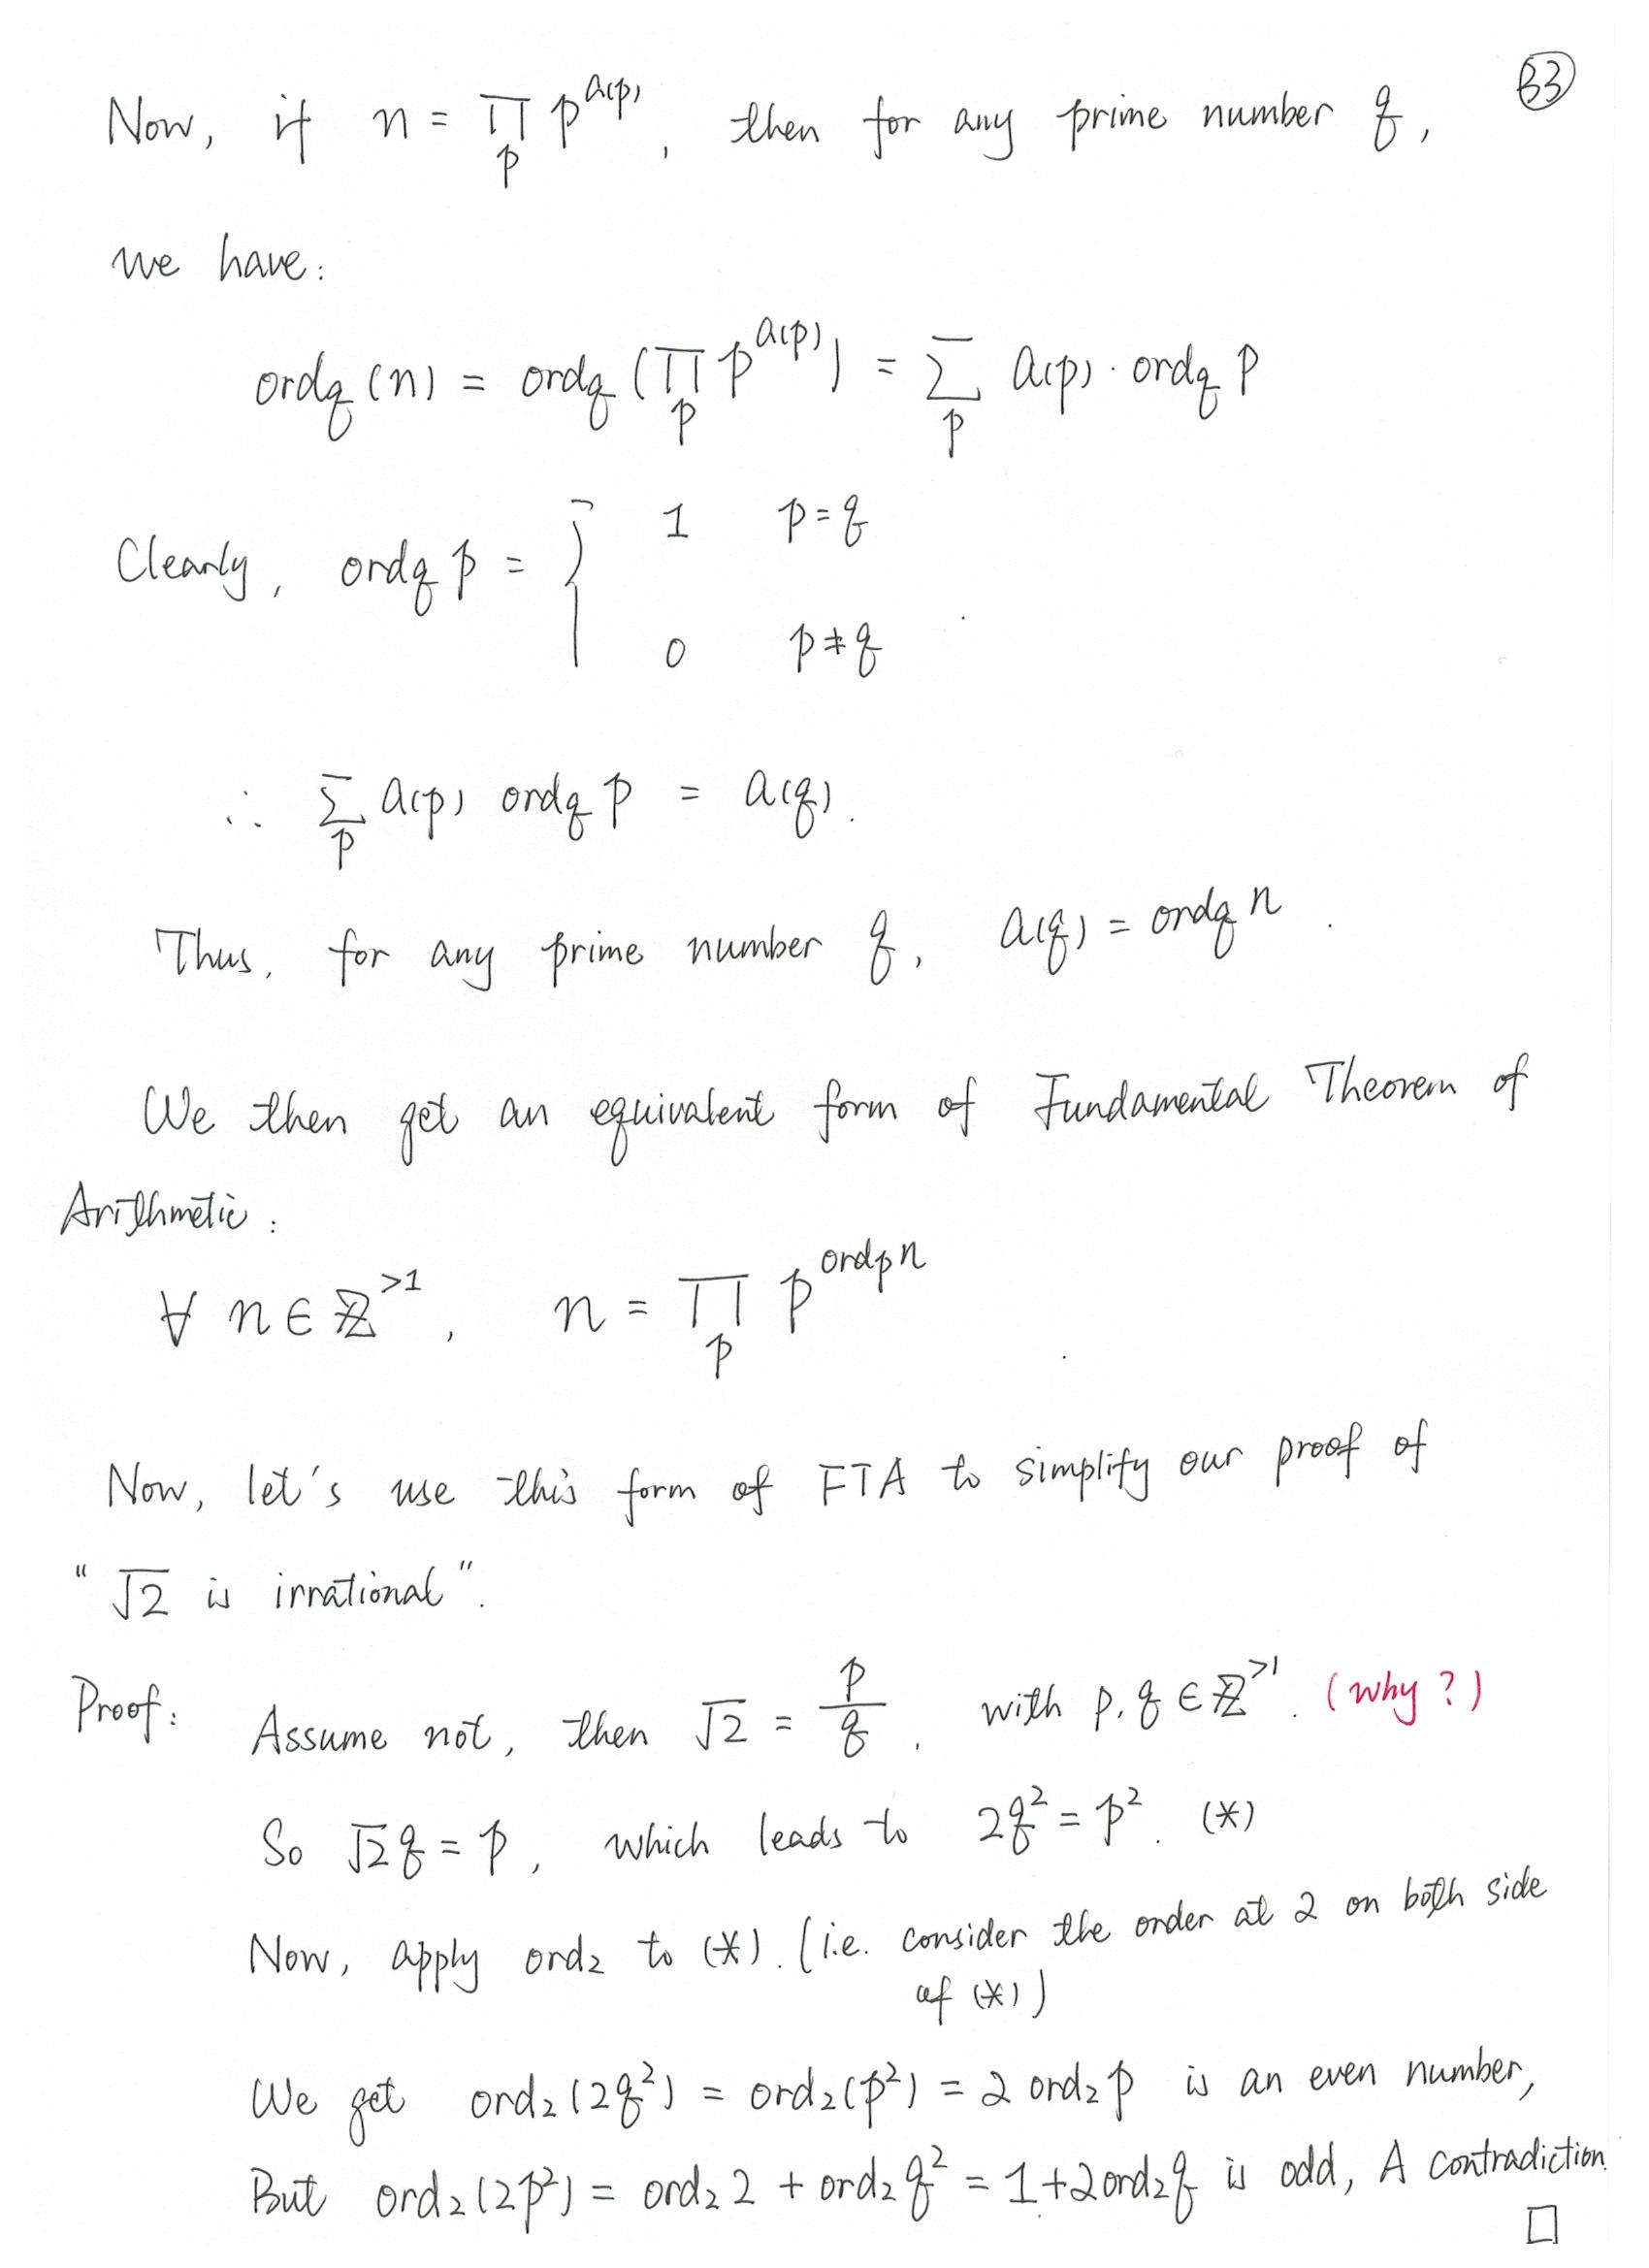 (33)
Now, if n = ∏_p p^{a(p)}, then for any prime number q,
we have:
ord_q(n) = ord_q(∏_p p^{a(p)}) = Σ_p a(p) · ord_q p
Clearly, ord_q p = { 1 p=q
0 p≠q
∴ Σ_p a(p) ord_q p = a(q).
Thus, for any prime number q, a(q) = ord_q n.
We then get an equivalent form of Fundamental Theorem of
Arithmetic:
∀ n ∈ ℤ^{>1}, n = ∏_p p^{ord_p n}
Now, let's use this form of FTA to simplify our proof of
"√2 is irrational".
Proof: Assume not, then √2 = p/q, with p, q ∈ ℤ^{>1}. (why?)
So √2q = p, which leads to 2q² = p². (*)
Now, apply ord₂ to (*). (i.e. consider the order at 2 on both side
of (*))
We get ord₂(2q²) = ord₂(p²) = 2 ord₂p is an even number,
But ord₂(2p²) = ord₂2 + ord₂q² = 1+2ord₂q is odd, A contradiction.
□